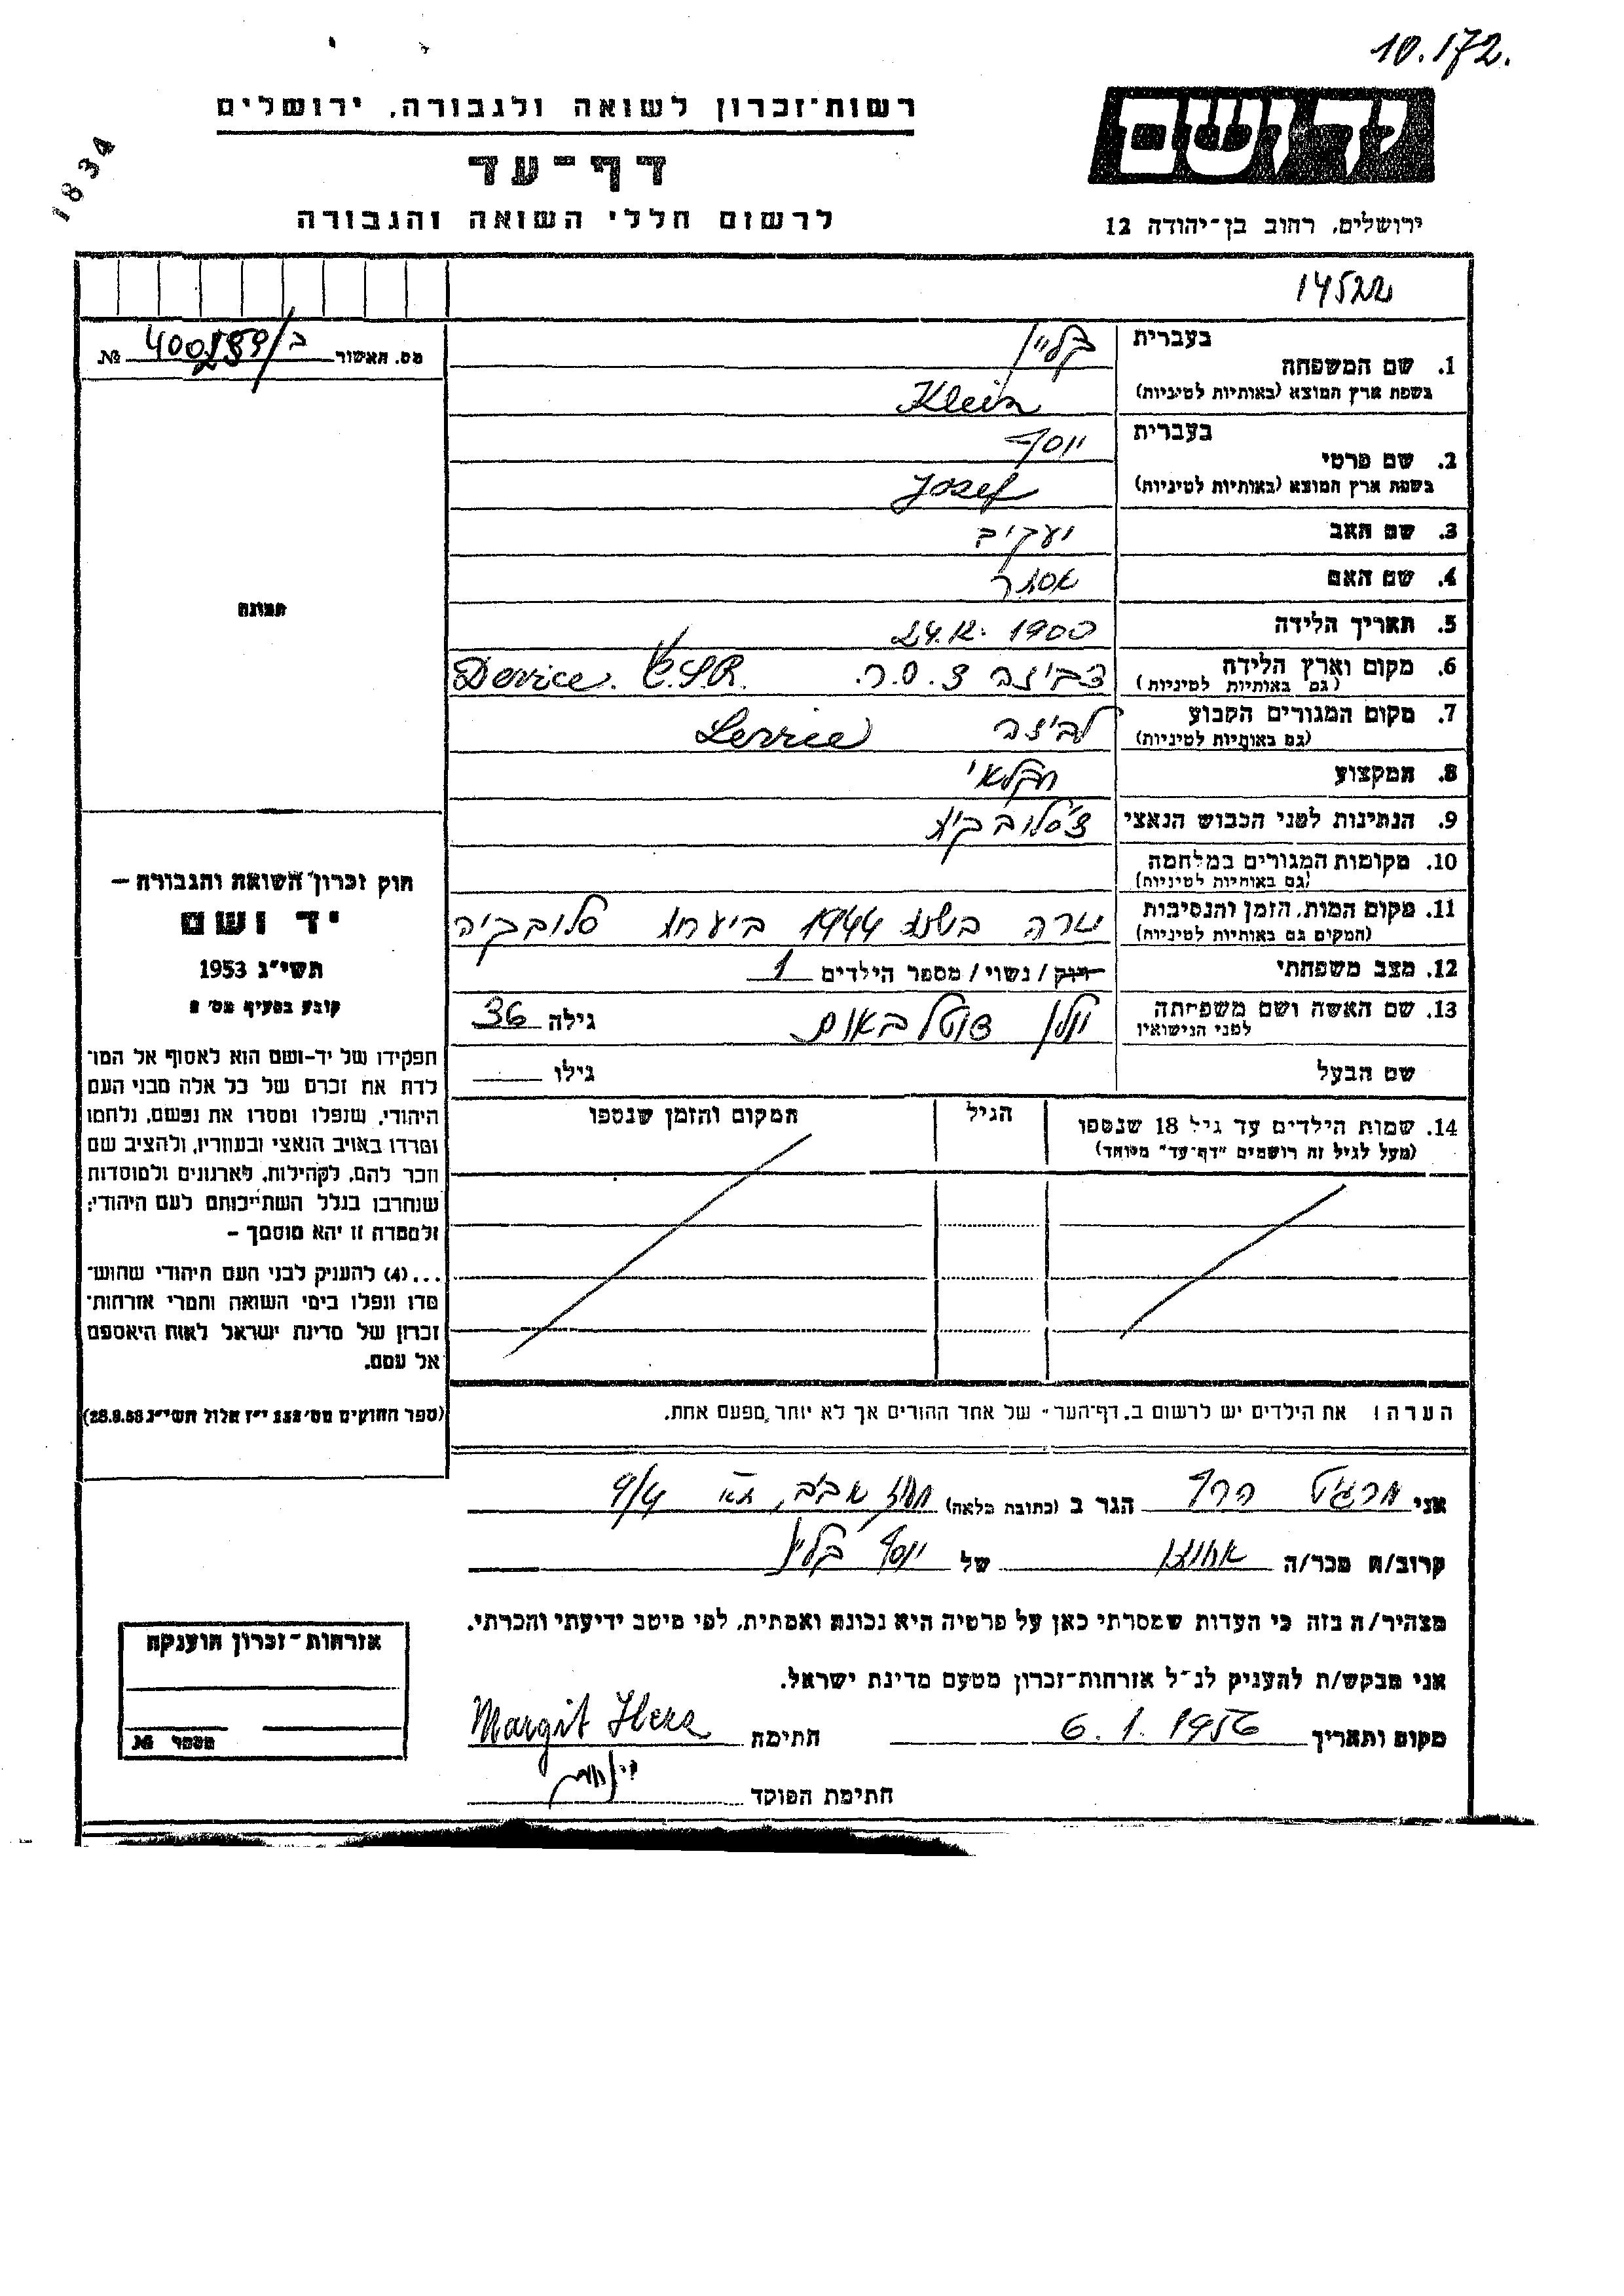 10.172.
1834
רשות-זכרון לשואה ולגבורה, ירושלים
ידושם
דף-עד
לרשום חללי השואה והגבורה
ירושלים, רחוב בן-יהודה 12
14522
מס. האשור ב/400299 №
תמונה
1. שם המשפחה
בעברית קליין
בשפת ארץ המוצא (באותיות לטיניות) Klein
2. שם פרטי
בעברית יוסף
בשפת ארץ המוצא (באותיות לטיניות) Josef
3. שם האב יעקיב
4. שם האם אסתר
5. תאריך הלידה 24.12. 1900
6. מקום וארץ הלידה (גם באותיות לטיניות) צ.ס.ר. Č.S.R.
7. מקום המגורים הקבוע (גם באותיות לטיניות) לביצה
8. המקצוע חקלאי
9. הנתינות לפני הכבוש הנאצי
10. מקומות המגורים במלחמה
(גם באותיות לטיניות)
11. מקום המות, הזמן והנסיבות (המקום גם באותיות לטיניות) בשנת 1944 סלובקיה
12. מצב משפחתי רווק / נשוי / מספר הילדים 1
13. שם האשה ושם משפחתה לפני הנישואין גילה 36
שם הבעל גילו
14. שמות הילדים עד גיל 18 שנספו הגיל המקום והזמן שנספו
(מעל לגיל זה רושמים "דף-עד" מיוחד)
הערה: את הילדים יש לרשום ב„דף-העד" של אחד ההורים אך לא יותר מפעם אחת.
חוק זכרון השואה והגבורה –
יד ושם
תשי"ג 1953
קובע בסעיף מס' 2
תפקידו של יד-ושם הוא לאסוף אל המו־
לדת את זכרם של כל אלה מבני העם
היהודי, שנפלו ומסרו את נפשם, נלחמו
ומרדו באויב הנאצי ובעוזריו, ולהציב שם
וזכר להם, לקהילות, לארגונים ולמוסדות
שנחרבו בגלל השתייכותם לעם היהודי;
ולמטרה זו יהא מוסמך –
...(4) להעניק לבני העם היהודי שהוש־
מדו ונפלו בימי השואה והמרי אזרחות־
זכרון של מדינת ישראל לאות היאספם
אל עמם.
(ספר החוקים מס' 132 י"ז אלול תשי"ג 28.8.53)
אני מרגיט הרץ הגר ב (כתובת מלאה) אביב, 9/4
קרוב/ה מכר/ה אחותו של יוסף קליין
מצהיר/ה בזה כי העדות שמסרתי כאן על פרטיה היא נכונה ואמתית, לפי מיטב ידיעתי והכרתי.
אני מבקש/ת להעניק לנ"ל אזרחות-זכרון מטעם מדינת ישראל.
מקום ותאריך 6.1.1956 חתימה Margit Herz
חתימת הפוקד
אזרחות-זכרון הוענקה
מספר №